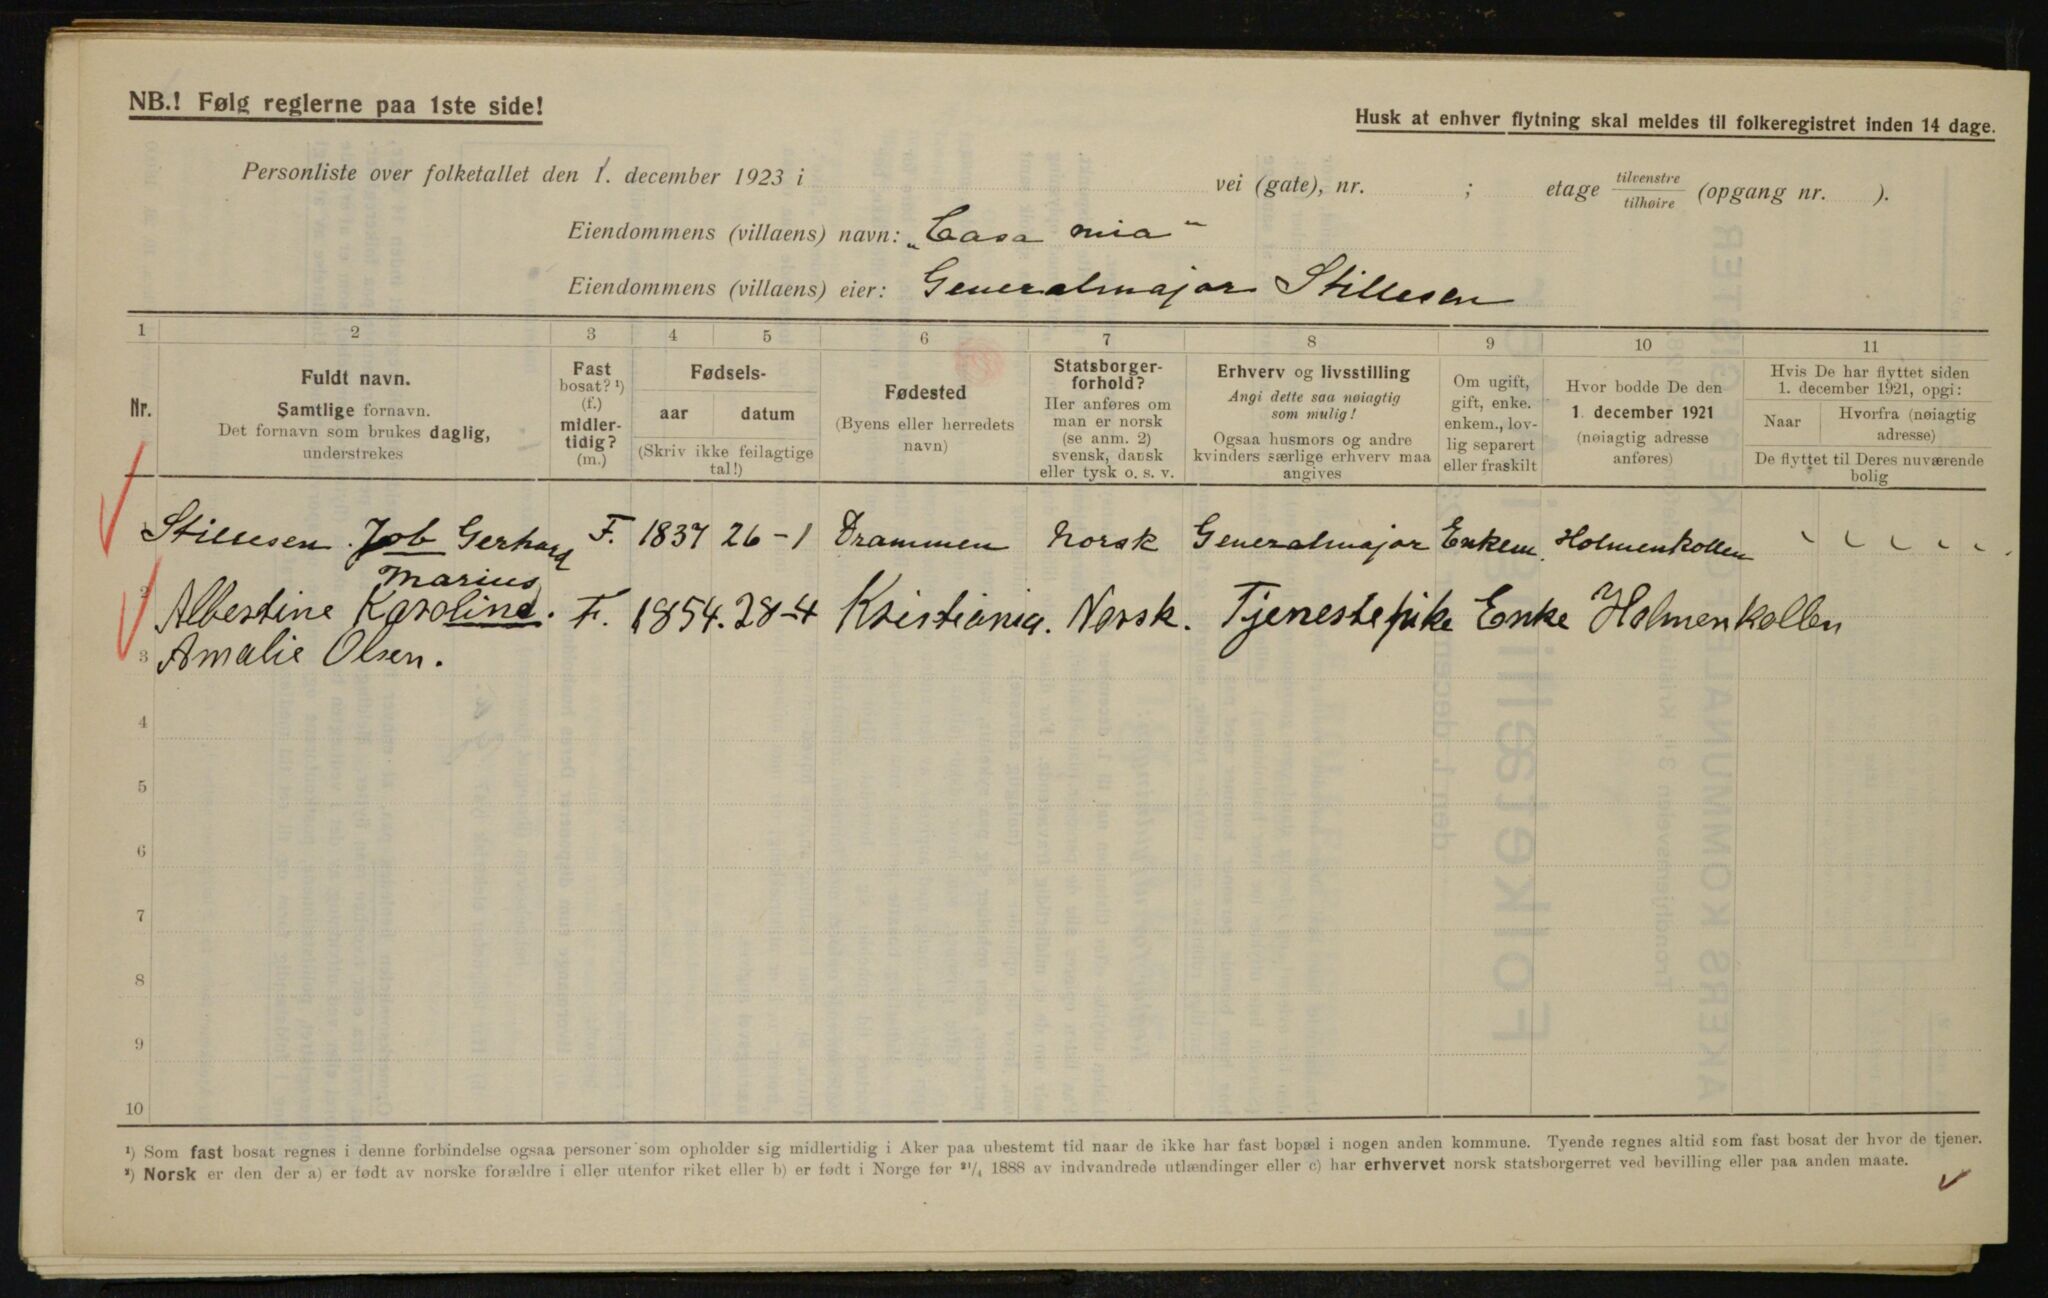 NB.! Følg reglerne paa 1ste side!
Husk at enhver flytning skal meldes til folkeregistret inden 14 dage.
Personliste over folketallet den 1. december 1923 i vei (gate), nr. ; etage tilvenstre/tilhøire (opgang nr. ).
Eiendommens (villaens) navn: „Casa mia"
Eiendommens (villaens) eier: Generalmajor Stillesen
1 2 3 4 5 6 7 8 9 10 11
Nr.
Fuldt navn.
Samtlige fornavn.
Det fornavn som brukes daglig,
understrekes
Fast
bosat? ¹)
(f.)
midler-
tidig?
(m.)
Fødsels-
aar datum
(Skriv ikke feilagtige
tal!)
Fødested
(Byens eller herredets
navn)
Statsborger-
forhold?
Her anføres om
man er norsk
(se anm. 2)
svensk, dansk
eller tysk o. s. v.
Erhverv og livsstilling
Angi dette saa nøiagtig
som mulig!
Ogsaa husmors og andre
kvinders særlige erhverv maa
angives
Om ugift,
gift, enke.
enkem., lov-
lig separert
eller fraskilt
Hvor bodde De den
1. december 1921
(nøiagtig adresse
anføres)
Hvis De har flyttet siden
1. december 1921, opgi:
Naar
Hvorfra (nøiagtig
adresse)
De flyttet til Deres nuværende
bolig
Stillesen Job Gerhard F. 1837 26-1 Drammen Norsk Generalmajor Enkem. Holmenkollen
Marius
2 Albertine Karoline. F. 1854. 28-4 Kristiania. Norsk. Tjenestepike Enke Holmenkollen
3 Amalie Olsen.
4
5
6
7
8
9
10
¹) Som fast bosat regnes i denne forbindelse ogsaa personer som opholder sig midlertidig i Aker paa ubestemt tid naar de ikke har fast bopæl i nogen anden kommune. Tyende regnes altid som fast bosat der hvor de tjener.
²) Norsk er den der a) er født av norske forældre i eller utenfor riket eller b) er født i Norge før ²¹/₄ 1888 av indvandrede utlændinger eller c) har erhvervet norsk statsborgerret ved bevilling eller paa anden maate.